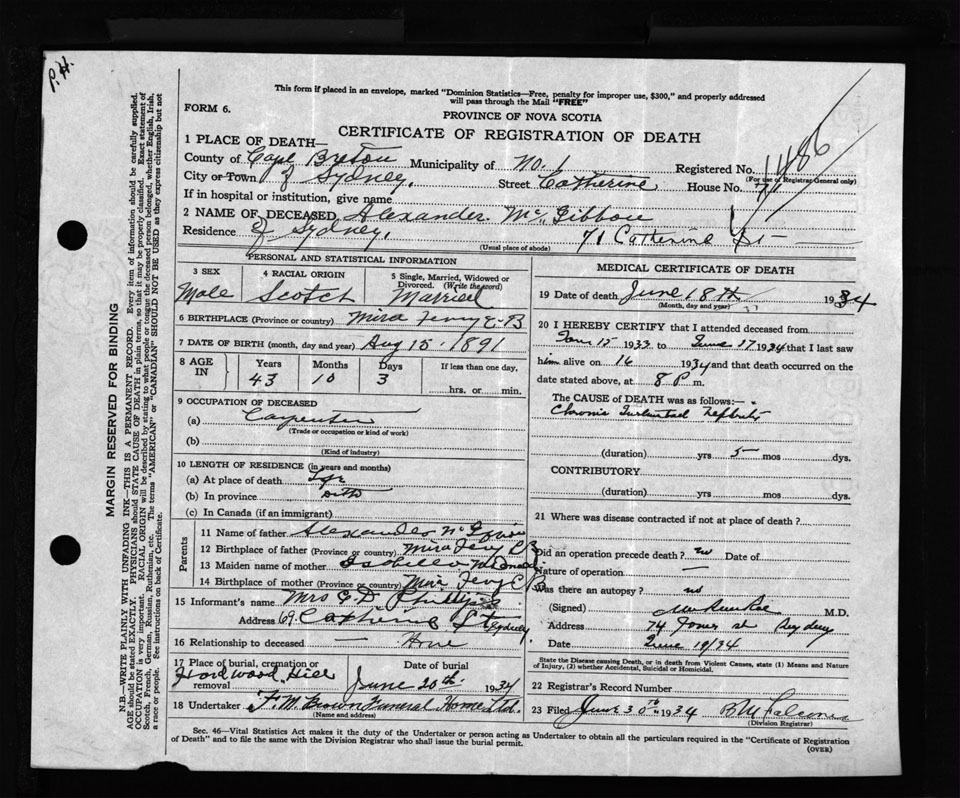 P.H.
This form if placed in an envelope, marked "Dominion Statistics—Free, penalty for improper use, $300," and properly addressed
will pass through the Mail "FREE"
FORM 6.
PROVINCE OF NOVA SCOTIA
CERTIFICATE OF REGISTRATION OF DEATH
1 PLACE OF DEATH—
County of Cape Breton Municipality of No. 1 Registered No.
(For use of Registrar General only)
City or Town of Sydney. Street Catherine House No. 71
If in hospital or institution, give name
2 NAME OF DECEASED Alexander McGibbon
Residence of Sydney. 71 Catherine St
(Usual place of abode)
PERSONAL AND STATISTICAL INFORMATION
3 SEX 4 RACIAL ORIGIN 5 Single, Married, Widowed or Divorced. (Write the word)
Male Scotch Married
6 BIRTHPLACE (Province or country) Mira Ferry C.B
7 DATE OF BIRTH (month, day and year) Aug 15. 1891
8 AGE IN Years Months Days If less than one day,
43 10 3 hrs. or min.
9 OCCUPATION OF DECEASED
(a) Carpenter
(Trade or occupation or kind of work)
(b)
(Kind of industry)
10 LENGTH OF RESIDENCE (in years and months)
(a) At place of death
(b) In province Ditto
(c) In Canada (if an immigrant)
Parents
11 Name of father Alexander McGibbon
12 Birthplace of father (Province or country) Mira Ferry C B
13 Maiden name of mother Isabella
14 Birthplace of mother (Province or country) Mira Ferry C B
15 Informant's name Mrs Phillips
Address 69 Catherine St Sydney
16 Relationship to deceased — None
17 Place of burial, cremation or removal Hardwood Hill Date of burial June 20th. 1934
18 Undertaker F. M. Brown Funeral Home Ltd.
(Name and address)
MEDICAL CERTIFICATE OF DEATH
19 Date of death June 18th 1934
(Month, day and year)
20 I HEREBY CERTIFY that I attended deceased from
15 1933 to June 17 1934 that I last saw
him alive on 16 1934 and that death occurred on the
date stated above, at 8 P. m.
The CAUSE of DEATH was as follows:—
Chronic
(duration) yrs 5 mos dys.
CONTRIBUTORY
(duration) yrs mos dys.
21 Where was disease contracted if not at place of death?
Did an operation precede death? no Date of
Nature of operation —
Was there an autopsy? no
(Signed) M.D.
Address 74 St Sydney
Date June 19/34
State the Disease causing Death, or in death from Violent Causes, state (1) Means and Nature
of Injury, (2) whether Accidental, Suicidal or Homicidal.
22 Registrar's Record Number
23 Filed June 30th 1934
(Division Registrar)
Sec. 46—Vital Statistics Act makes it the duty of the Undertaker or person acting as Undertaker to obtain all the particulars required in the "Certificate of Registration
of Death" and to file the same with the Division Registrar who shall issue the burial permit.
(OVER)
MARGIN RESERVED FOR BINDING
N.B.—WRITE PLAINLY WITH UNFADING INK—THIS IS A PERMANENT RECORD. Every item of information should be carefully supplied.
AGE should be stated EXACTLY. PHYSICIANS should STATE CAUSE OF DEATH in plain terms, so that it may be properly classified. Exact statement of
OCCUPATION is very important. RACIAL ORIGIN will be described by stating to what people or tongue the deceased person belonged, whether English, Irish,
Scotch, French, German, Russian, Ruthenian, etc. The terms "AMERICAN" or "CANADIAN" SHOULD NOT BE USED as they express citizenship but not
a race or people. See instructions on back of Certificate.